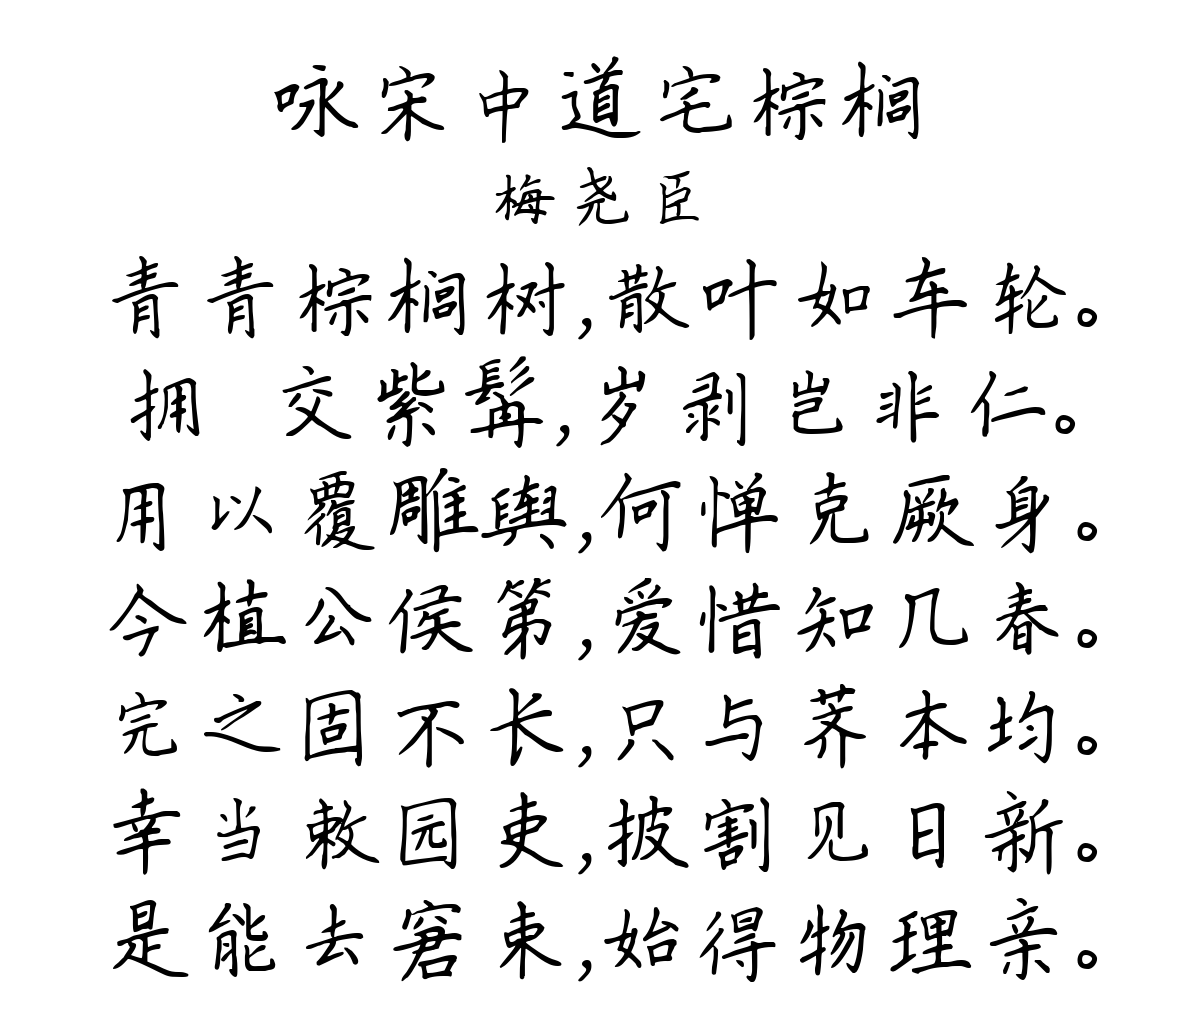 咏宋中道宅棕榈
梅尧臣
青青棕榈树,散叶如车轮。
拥 交紫髯,岁剥岂非仁。
用以覆雕舆,何惮克厥身。
今植公侯第,爱惜知几春。
完之固不长,只与荠本均。
幸当敕园吏,披割见日新。
是能去窘束,始得物理亲。